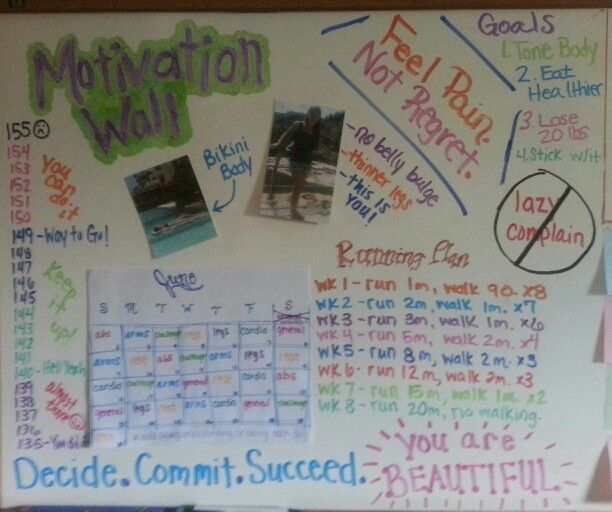 Motivation
Wall
Feel Pain.
Not Regret.
Goals
1. Tone Body
2. Eat
Healthier
3. Lose
20 lbs
4. Stick w/it
Bikini
Body
-no belly bulge
-thinner legs
-this is
you!
lazy
complain
155
154
153
152
151
150
149-Way to Go!
148
147
146
145
144
143
142
141
140-Hell Yeah!
139
138
137
136
135-You did
You
can
do
it
Keep
it
up!
almost
there
June
S M T W T F S
general
abs arms challenge rest legs cardio general
arms rest abs challenge arms legs rest
cardio challenge arms general rest cardio abs
general legs rest arms cardio general challenge
rest
Running Plan
wk 1 - run 1m, walk 90. x8
wk 2 - run 2m, walk 1m. x7
wk 3 - run 3m, walk 1m. x6
wk 4 - run 5m, walk 2m. x4
wk 5 - run 8m, walk 2m. x3
wk 6 - run 12m, walk 2m. x3
wk 7 - run 15m, walk 1m. x2
wk 8 - run 20m, no walking.
you are
BEAUTIFUL
Decide. Commit. Succeed.